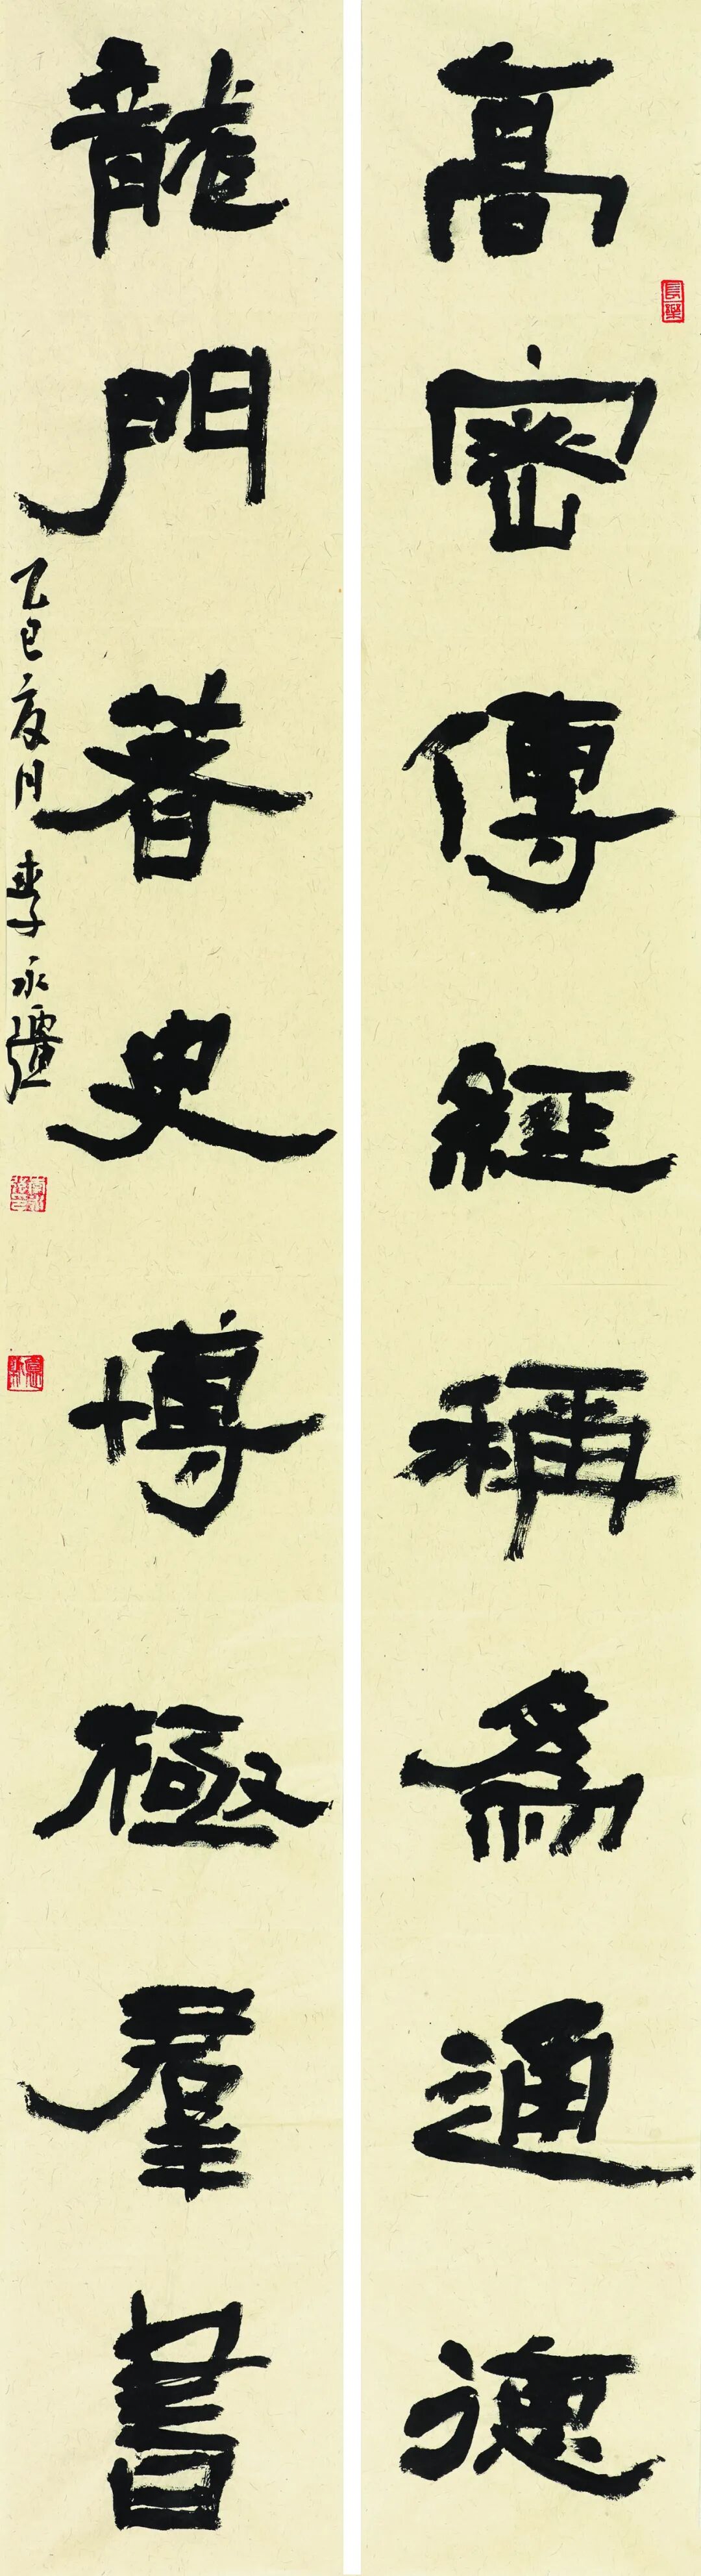 高密傳經稱為通德
龍門著史博極羣書
乙巳夏月 李永疆